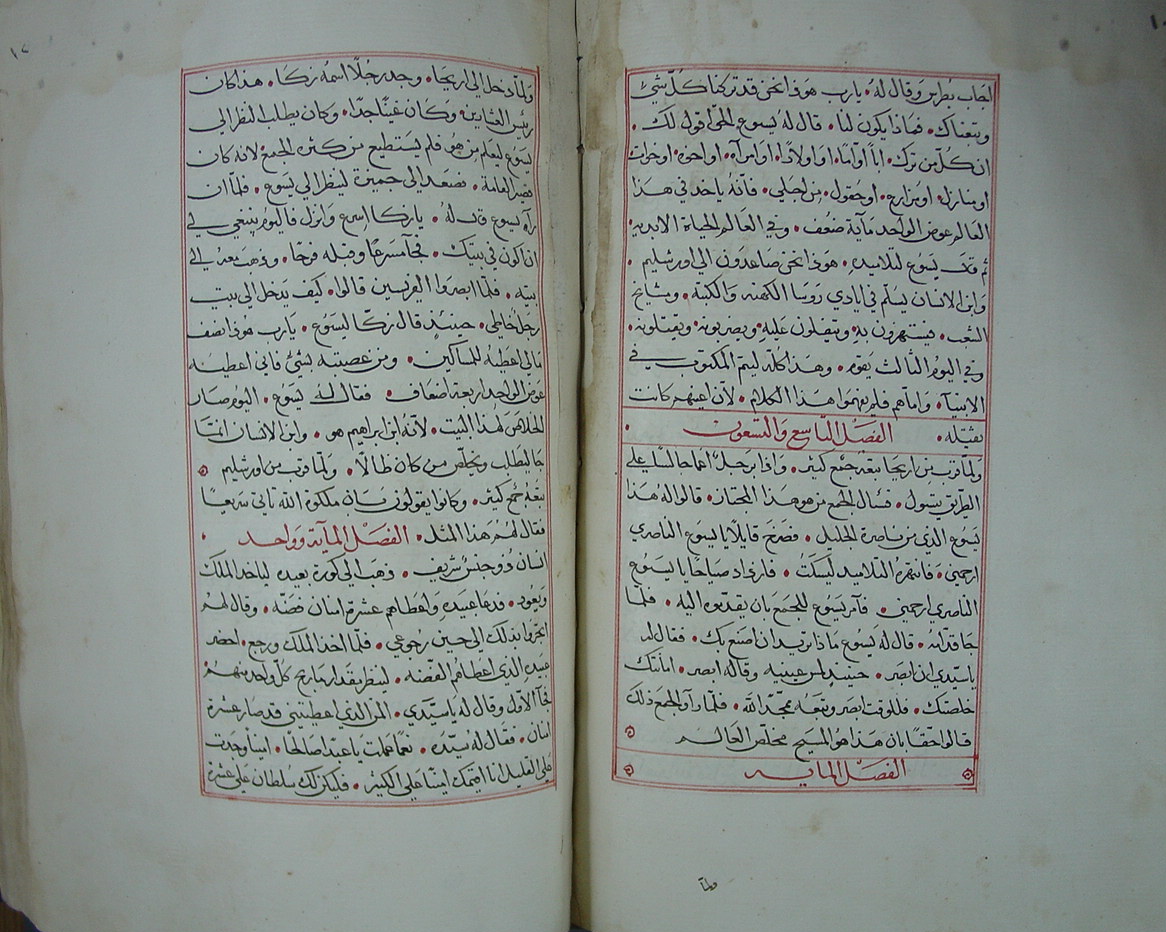 اجاب بطرس وقال له • يارب هوذا نحن قد تركنا كل شي
وتبعناك • فماذا يكون لنا • قال له يسوع الحق اقول لك •
ان كل من ترك • ابًا او امًا • او اولادًا • او امرآه • او اخوه • او اخوات
او منازل • او مزارع • او حقول • من اجلي • فانه ياخد في هدا
العالم عوض الواحد مآية ضعف • وفي العالم الحياة الابدية •
ثم يسوع لتلاميده • هودا نحن صاعدون الى اورشليم •
وابن الانسان يسلم في ايادي روسا الكهنه والكتبه • ومشايخ
الشعب • فيستهزون به ويتفلون عليه • ويضربونه • ويقتلونه •
وفي اليوم الثالث يقوم • وهدا كله ليتم المكتوب في
الانبيآ • واما هم فلم يفهموا هدا الكلام • لان اعينهم كانت
ثقيله • الفصل التاسع والتسعون •
ولما قرب من اريحا تبعه جمع كثير • وادا برجل اعما جالسًا على
الطريق يتسول • فسال الجمع من هو هدا المجتاز • قالوا له هدا
يسوع الدي من ناصرة الجليل • فصرخ قايلًا يا يسوع الناصري
ارحمني • فانتهره التلاميد ليسكت • فازداد صياحًا يا يسوع
الناصري ارحمني • فآمر يسوع للجمع بان يقدموه اليه • فلما
جا قدامه • قال له يسوع ماذا تريد ان اصنع بك • فقال له
ياسيدي ان ابصر • حينيدٍ لمس عينيه وقال له ابصر • امانتك
خلصتك • فللوقت ابصر وتبعه ممجدًا لله • فلما رآو الجمع ذلك
قالوا حقًا بان هدا هو المسيح مخلص العالم
الفصل المايه
ولما
١٧
ولما دخل الى اريحا • وجد رجلًا اسمه زكا • هدا كان
رئيس العشارين • وكان غنيًا جدًا • وكان يطلب النظر الى
يسوع ليعلم من هو فلم يستطيع من كثرة الجمع لانه كان
قصير القامة • فصعد الى جميزة لينظر الى يسوع • فلما ان
رآه يسوع قال له • يا زكا اسرع وانزل فاليوم ينبغي لي
ان اكون في بيتك • فجآ مسرعًا وقبله فرحًا • ودهب معه الى
بيته • فلما ابصروا الفريسين قالوا • كيف يدخل الى بيت
رجل خاطي • حينيدٍ قال زكا ليسوع • يارب هودا نصف
مالي اعطيه للمساكين • ومن غصبته بشي فاني اعطيه
عوض الواحد اربعة اضعاف • فقال له يسوع • اليوم صار
الخلاص لهدا البيت • لانه ابن ابراهيم هو • وابن الانسان انما
جا ليطلب ويخلص من كان ضالًا • ولما قرب من اورشليم •
تبعه جمع كثير • وكانوا يقولون بان ملكوة الله تاتي سريعًا
فقال لهم هدا المثل • الفصل المآية وواحد •
انسان دو جنس شريف • دهب الى كورة بعيده لياخد الملك
ويعود • فدعا عبيده واعطاهم عشرة امنان فضه • وقال لهم
اتجروا بدلك الى حين رجوعي • فلما اخد الملك ورجع • احضر
عبيده الدي اعطاهم الفضه • لينظر مقدار ما ربح كل واحد منهم
فجآ الاول وقال له ياسيدي • المن الدي اعطيتني قد صار عشرة
امنان • فقال له سيده • نعمًا عملت يا عبدًا صالحًا • امينًا وجدت
على القليل انا اقيمك امينًا على الكثير • فليكن لك سلطان على عشرة